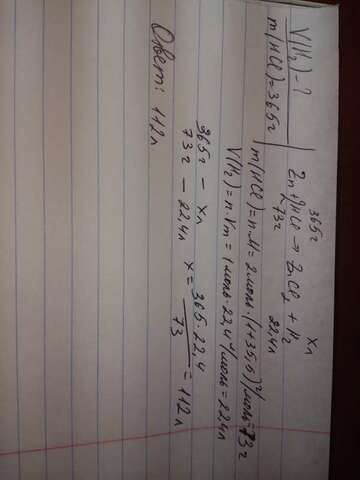 V(H₂)-?
m(HCl)=365г
365г xл
Zn+2HCl → ZnCl₂ + H₂
73г 22,4л
m(HCl)=n·M=2моль·(1+35,5)г/моль=73г
V(H₂)=n·Vm=1моль·22,4л/моль=22,4л
365г – xл
73г – 22,4л x=365·22,4/73=112л
Ответ: 112л